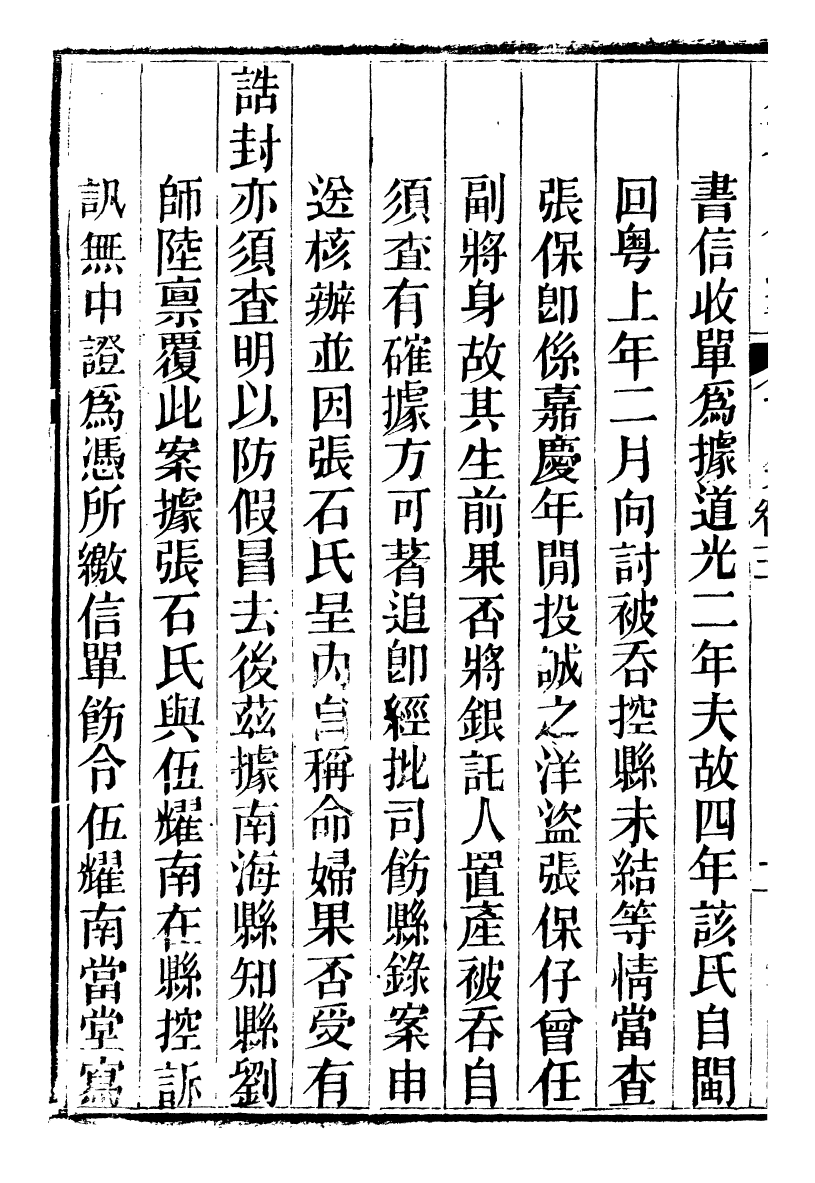 書信收單爲據道光二年夫故四年該氏自閩
回粤上年二月向討被吞控縣未結等情當查
張保卽係嘉慶年閒投誠之洋盜張保仔曾任
副將身故其生前果否將銀託人置產被吞自
須查有確據方可著追卽經批司飭縣錄案申
送核辦並因張石氏呈內自稱命婦果否受有
誥封亦須查明以防假冒去後茲據南海縣知縣劉
師陸禀覆此案據張石氏與伍耀南在縣控訴
訊無中證爲憑所繳信單飭令伍耀南當堂寫